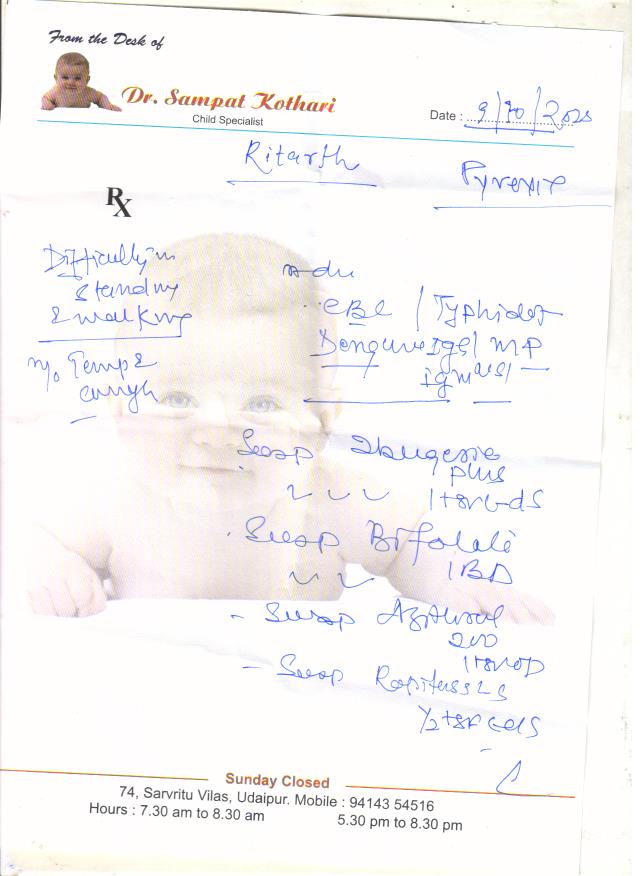 From the Desk of
Dr. Sampat Kothari
Child Specialist
Date : 9/10/2025
Ritarth
Pyrexia
Rx
Difficulty in
standing
& walking
H/o Temp &
cough
Adv
CBC / Typhidot
Dengue IgG/ MP
IgM
Syrup Ibugesic
plus
1 tsf tds
Syrup Bifolate
1 BD
Syrup Azithral
200
1 tsf OD
Syrup Rapitus LS
1/2 tsf tds
Sunday Closed
74, Sarvritu Vilas, Udaipur. Mobile : 94143 54516
Hours : 7.30 am to 8.30 am 5.30 pm to 8.30 pm